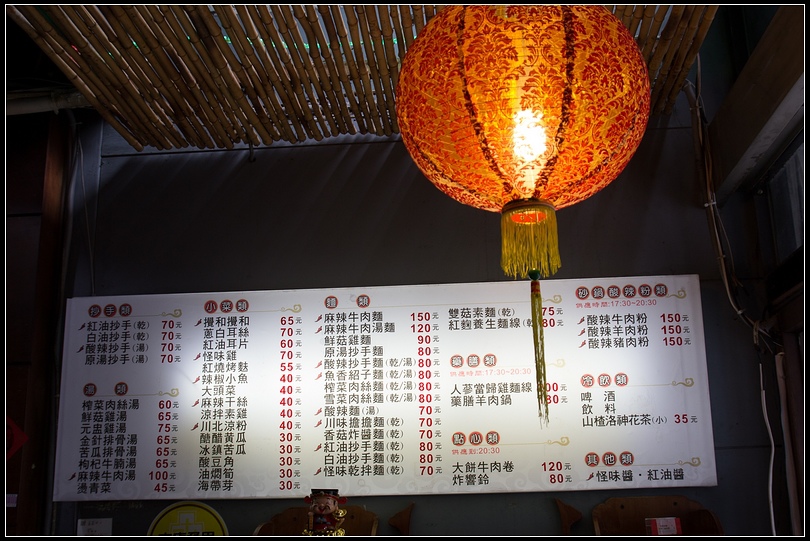 抄手類
紅油抄手(乾) 70元
白油抄手(乾) 70元
酸辣抄手(湯) 70元
原湯抄手(湯) 70元
湯 類
榨菜肉絲湯 60元
鮮菇雞湯 65元
元盅雞湯 75元
金針排骨湯 65元
苦瓜排骨湯 65元
枸杞牛腩湯 65元
麻辣牛肉湯 100元
燙青菜 45元
小菜類
攪和攪和 65元
蔥白耳絲 70元
紅油耳片 60元
怪味雞 70元
紅燒烤麩 55元
辣椒小魚 40元
大頭菜 40元
麻辣干絲 40元
涼拌素雞 40元
川北涼粉 40元
醋醋黃瓜 30元
冰鎮苦瓜 30元
酸豆角 30元
油燜筍 30元
海帶芽 30元
麵 類
麻辣牛肉麵 150元
麻辣牛肉湯麵 120元
鮮菇雞麵 90元
原湯抄手麵 80元
酸辣抄手麵(乾/湯) 80元
魚香紹子麵(乾/湯) 80元
榨菜肉絲麵(乾/湯) 80元
雪菜肉絲麵(乾/湯) 80元
酸辣麵(湯) 70元
川味擔擔麵(乾) 70元
香菇炸醬麵(乾) 70元
紅油抄手麵(乾) 80元
白油抄手麵(乾) 80元
怪味乾拌麵(乾) 70元
雙菇素麵(乾) 75元
紅麴養生麵線(乾) 80元
藥膳類
供應時間:17:30~20:30
人蔘當歸雞麵線 00元
藥膳羊肉鍋 80元
點心類
供應到:20:30
大餅牛肉卷 120元
炸響鈴 80元
砂鍋酸辣粉類
供應時間:17:30~20:30
酸辣牛肉粉 150元
酸辣羊肉粉 150元
酸辣豬肉粉 150元
冷飲類
啤 酒
飲 料
山楂洛神花茶(小) 35元
其他類
怪味醬．紅油醬